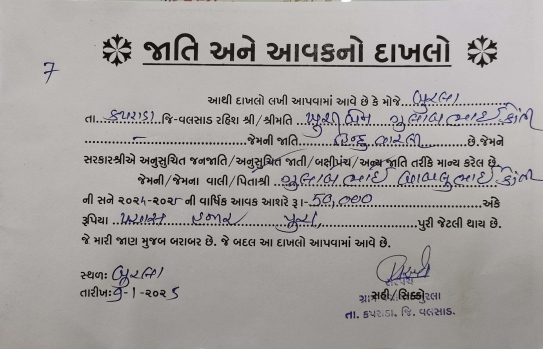 જાતિ અને આવકનો દાખલો
7
આથી દાખલો લખી આપવામાં આવે છે કે મોજે બુરલા
તા. કપરાડા જિ-વલસાડ રહિશ શ્રી/શ્રીમતિ ખુશીબેન ગુલાબભાઈ
જેમની જાતિ હિન્દુ વારલી છે.જેમને
સરકારશ્રીએ અનુસુચિત જનજાતિ/અનુસુચિત જાતી/બક્ષીપંચ/અન્ય જાતિ તરીકે માન્ય કરેલ છે.
જેમની/જેમના વાલી/પિતાશ્રી ગુલાબભાઈ
ની સને ૨૦૨૪-૨૦૨૫ ની વાર્ષિક આવક આશરે રૂા-50,000 અંકે
રૂપિયા પચાસ હજાર પુરા પુરી જેટલી થાય છે.
જે મારી જાણ મુજબ બરાબર છે. જે બદલ આ દાખલો આપવામાં આવે છે.
સ્થળ: બુરલા
તારીખ: 9-1-૨૦૨૬
સરપંચ
સહી/સિક્કો
તા. કપરાડા. જિ. વલસાડ.